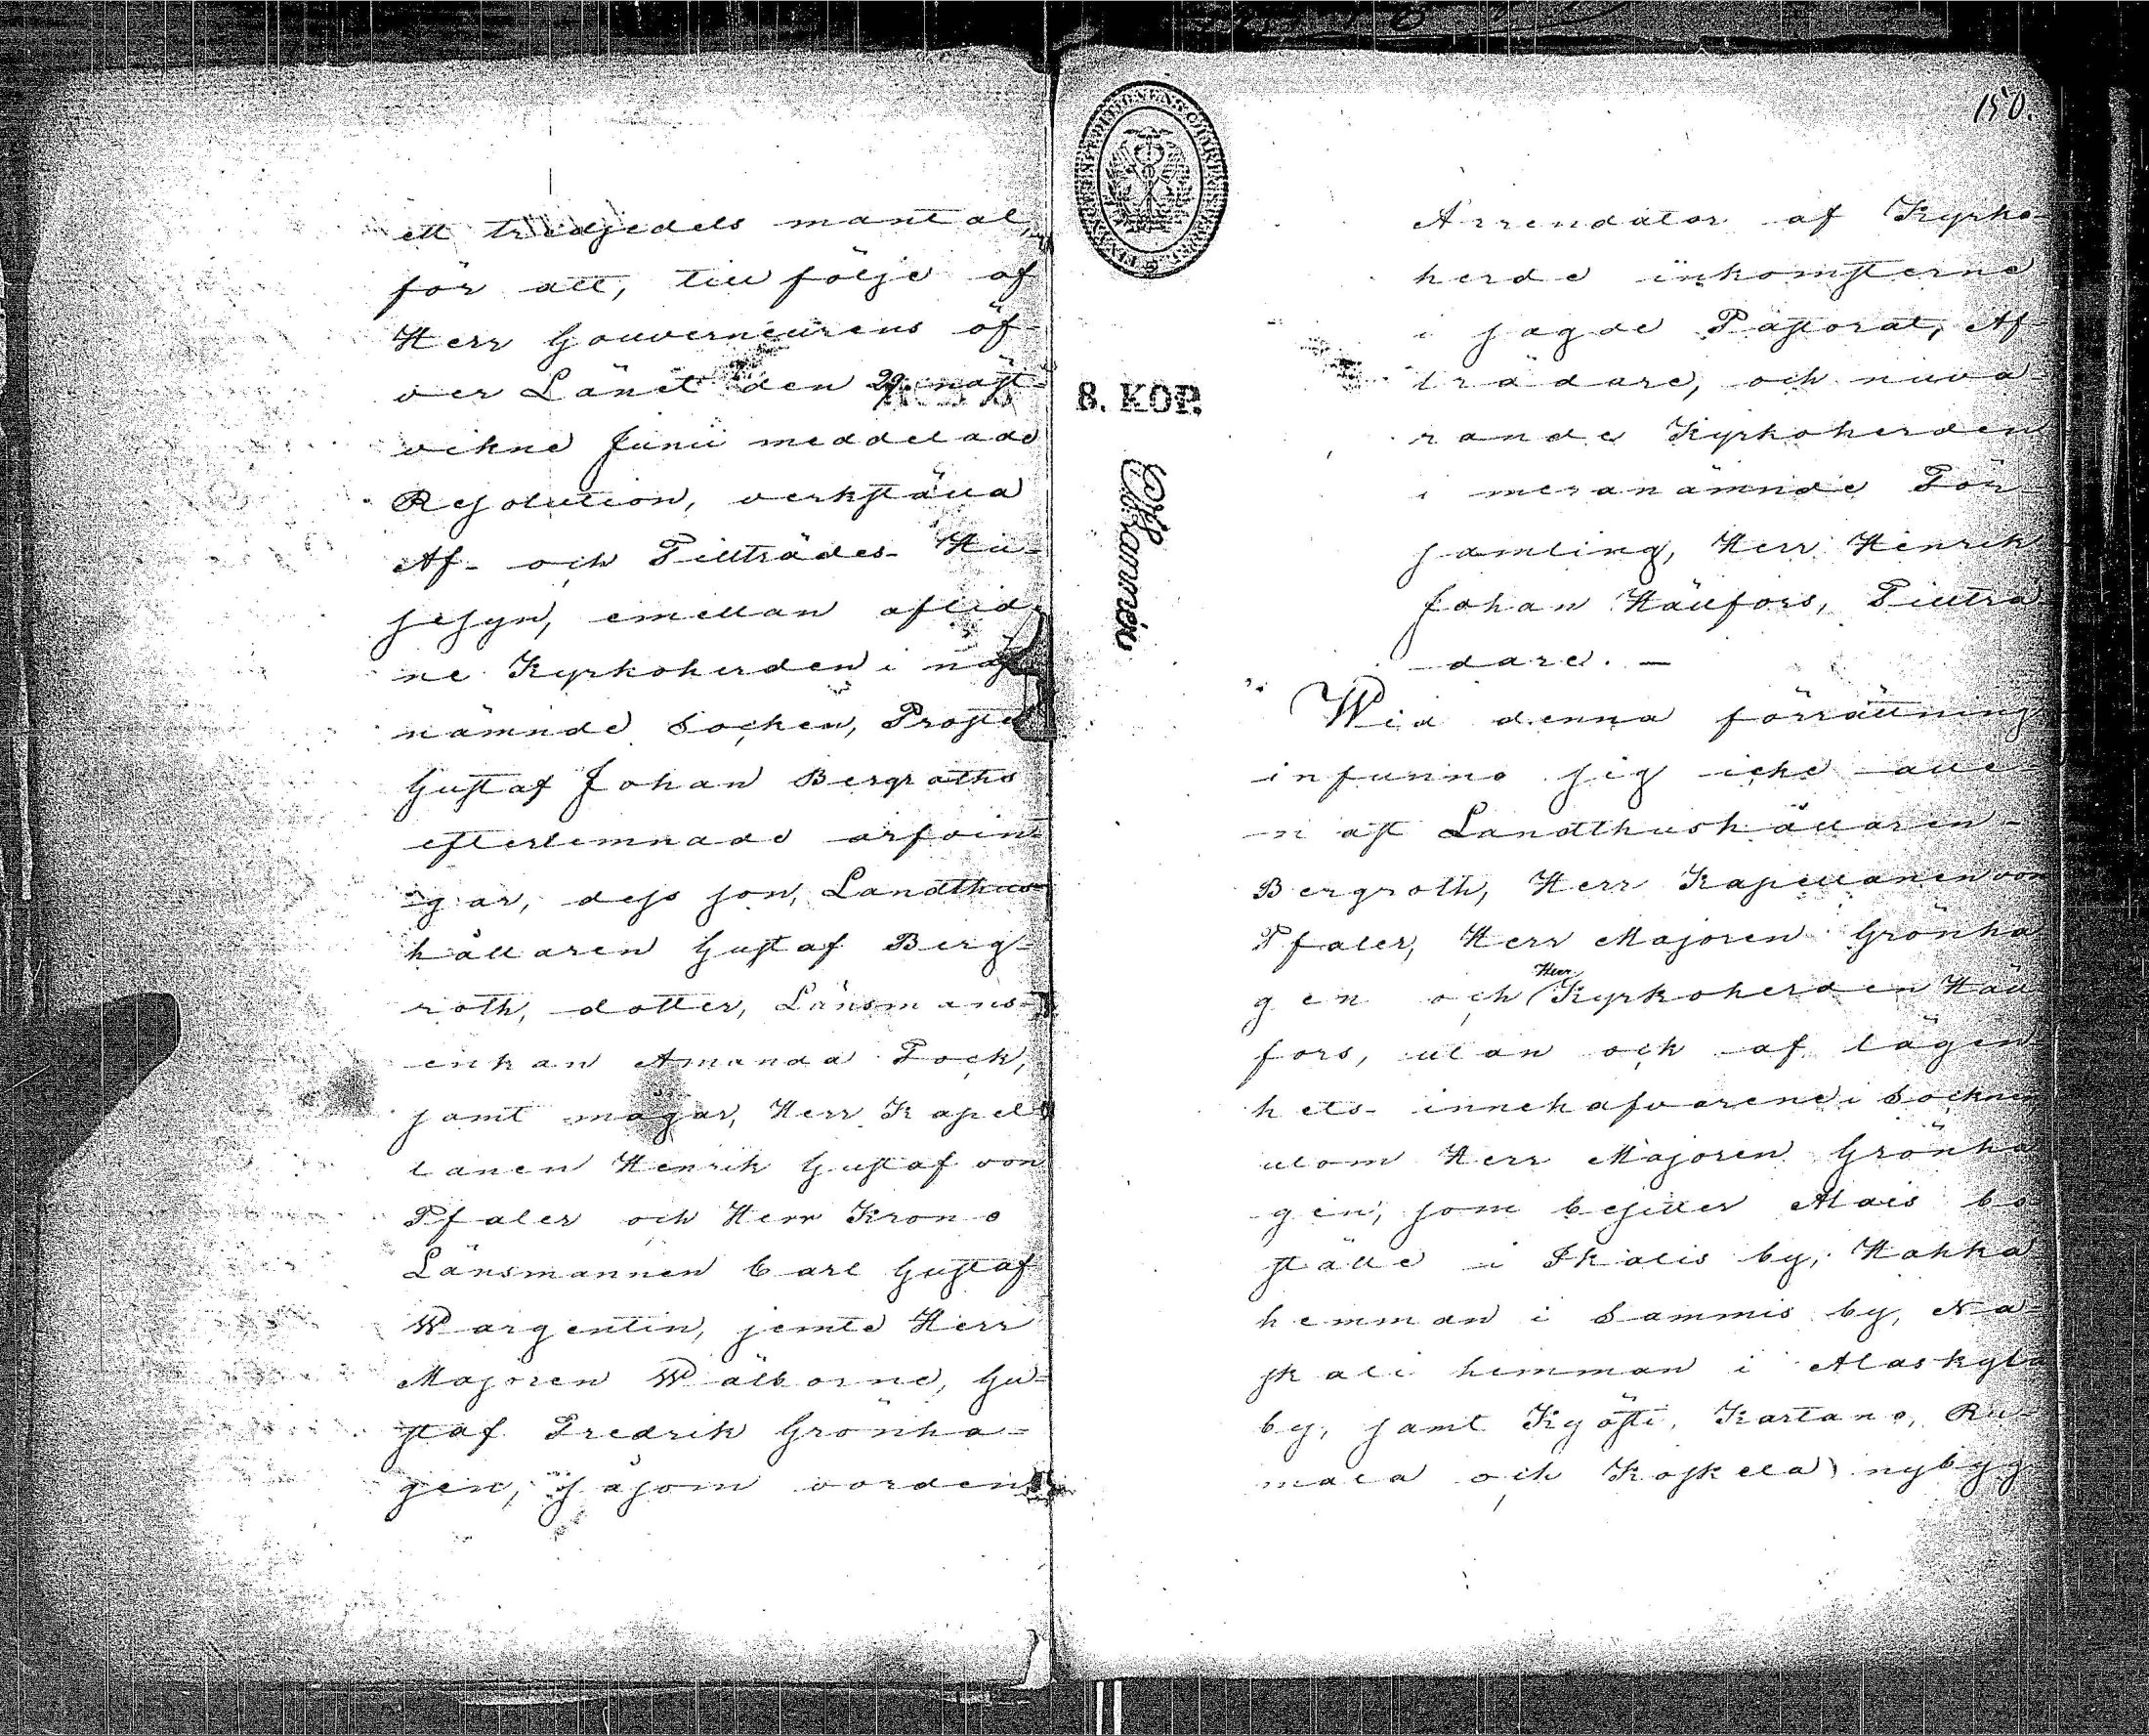 ett tredjedels mantal,
för att, till följe af
Herr Gouverneurens öf-
ver Länet den 29 näst-
vikne Junii meddelade
Resolution, verkställa
Af- och Tillträdes- Hu-
sesyn, emellan aflid-
ne Kyrkoherden i näst
nämnde Socken, Prosten
Gustaf Johan Bergroths
efterlemnade arfvin-
gar, dess son, Landthus-
hållaren Gustaf Berg-
roth, dotter, Länsmans-
enkan Amanda Fock,
samt mågar, Herr Kapel-
lanen Henrik Gustaf von
Pfaler och Herr Krono
Länsmannen Carl Gustaf
Wargentin, jemte Herr
Majoren Wälborne, Gu-
staf Fredrik Grönha-
gen, såsom vorden
150.
8. KOP.
Arrendator af Kyrko-
herde inkomsterne
i sagde Pastorat, Af-
trädare, och nuva-
rande Kyrkoherden
i meranämnde För-
samling, Herr Henrik
Johan Hällfors, Tillträ-
dare. —
Wid denna förrättning
infunno sig icke alle-
nast Landthushållaren
Bergroth, Herr Kapellanen von
Pfaler, Herr Majoren Grönha
gen och Herr Kyrkoherden Häll
fors, utan ock af lägen
hets- innehafvarene i Socknen
utom Herr Majoren Grönha
gen, som besitter Alais bo
ställe i Skalis by, Hakka
hemman i Sammis by, Na-
skali hemman i Alaskylä
by, samt Kyösti, Kartano, Ru-
mala och Koskela nybygg